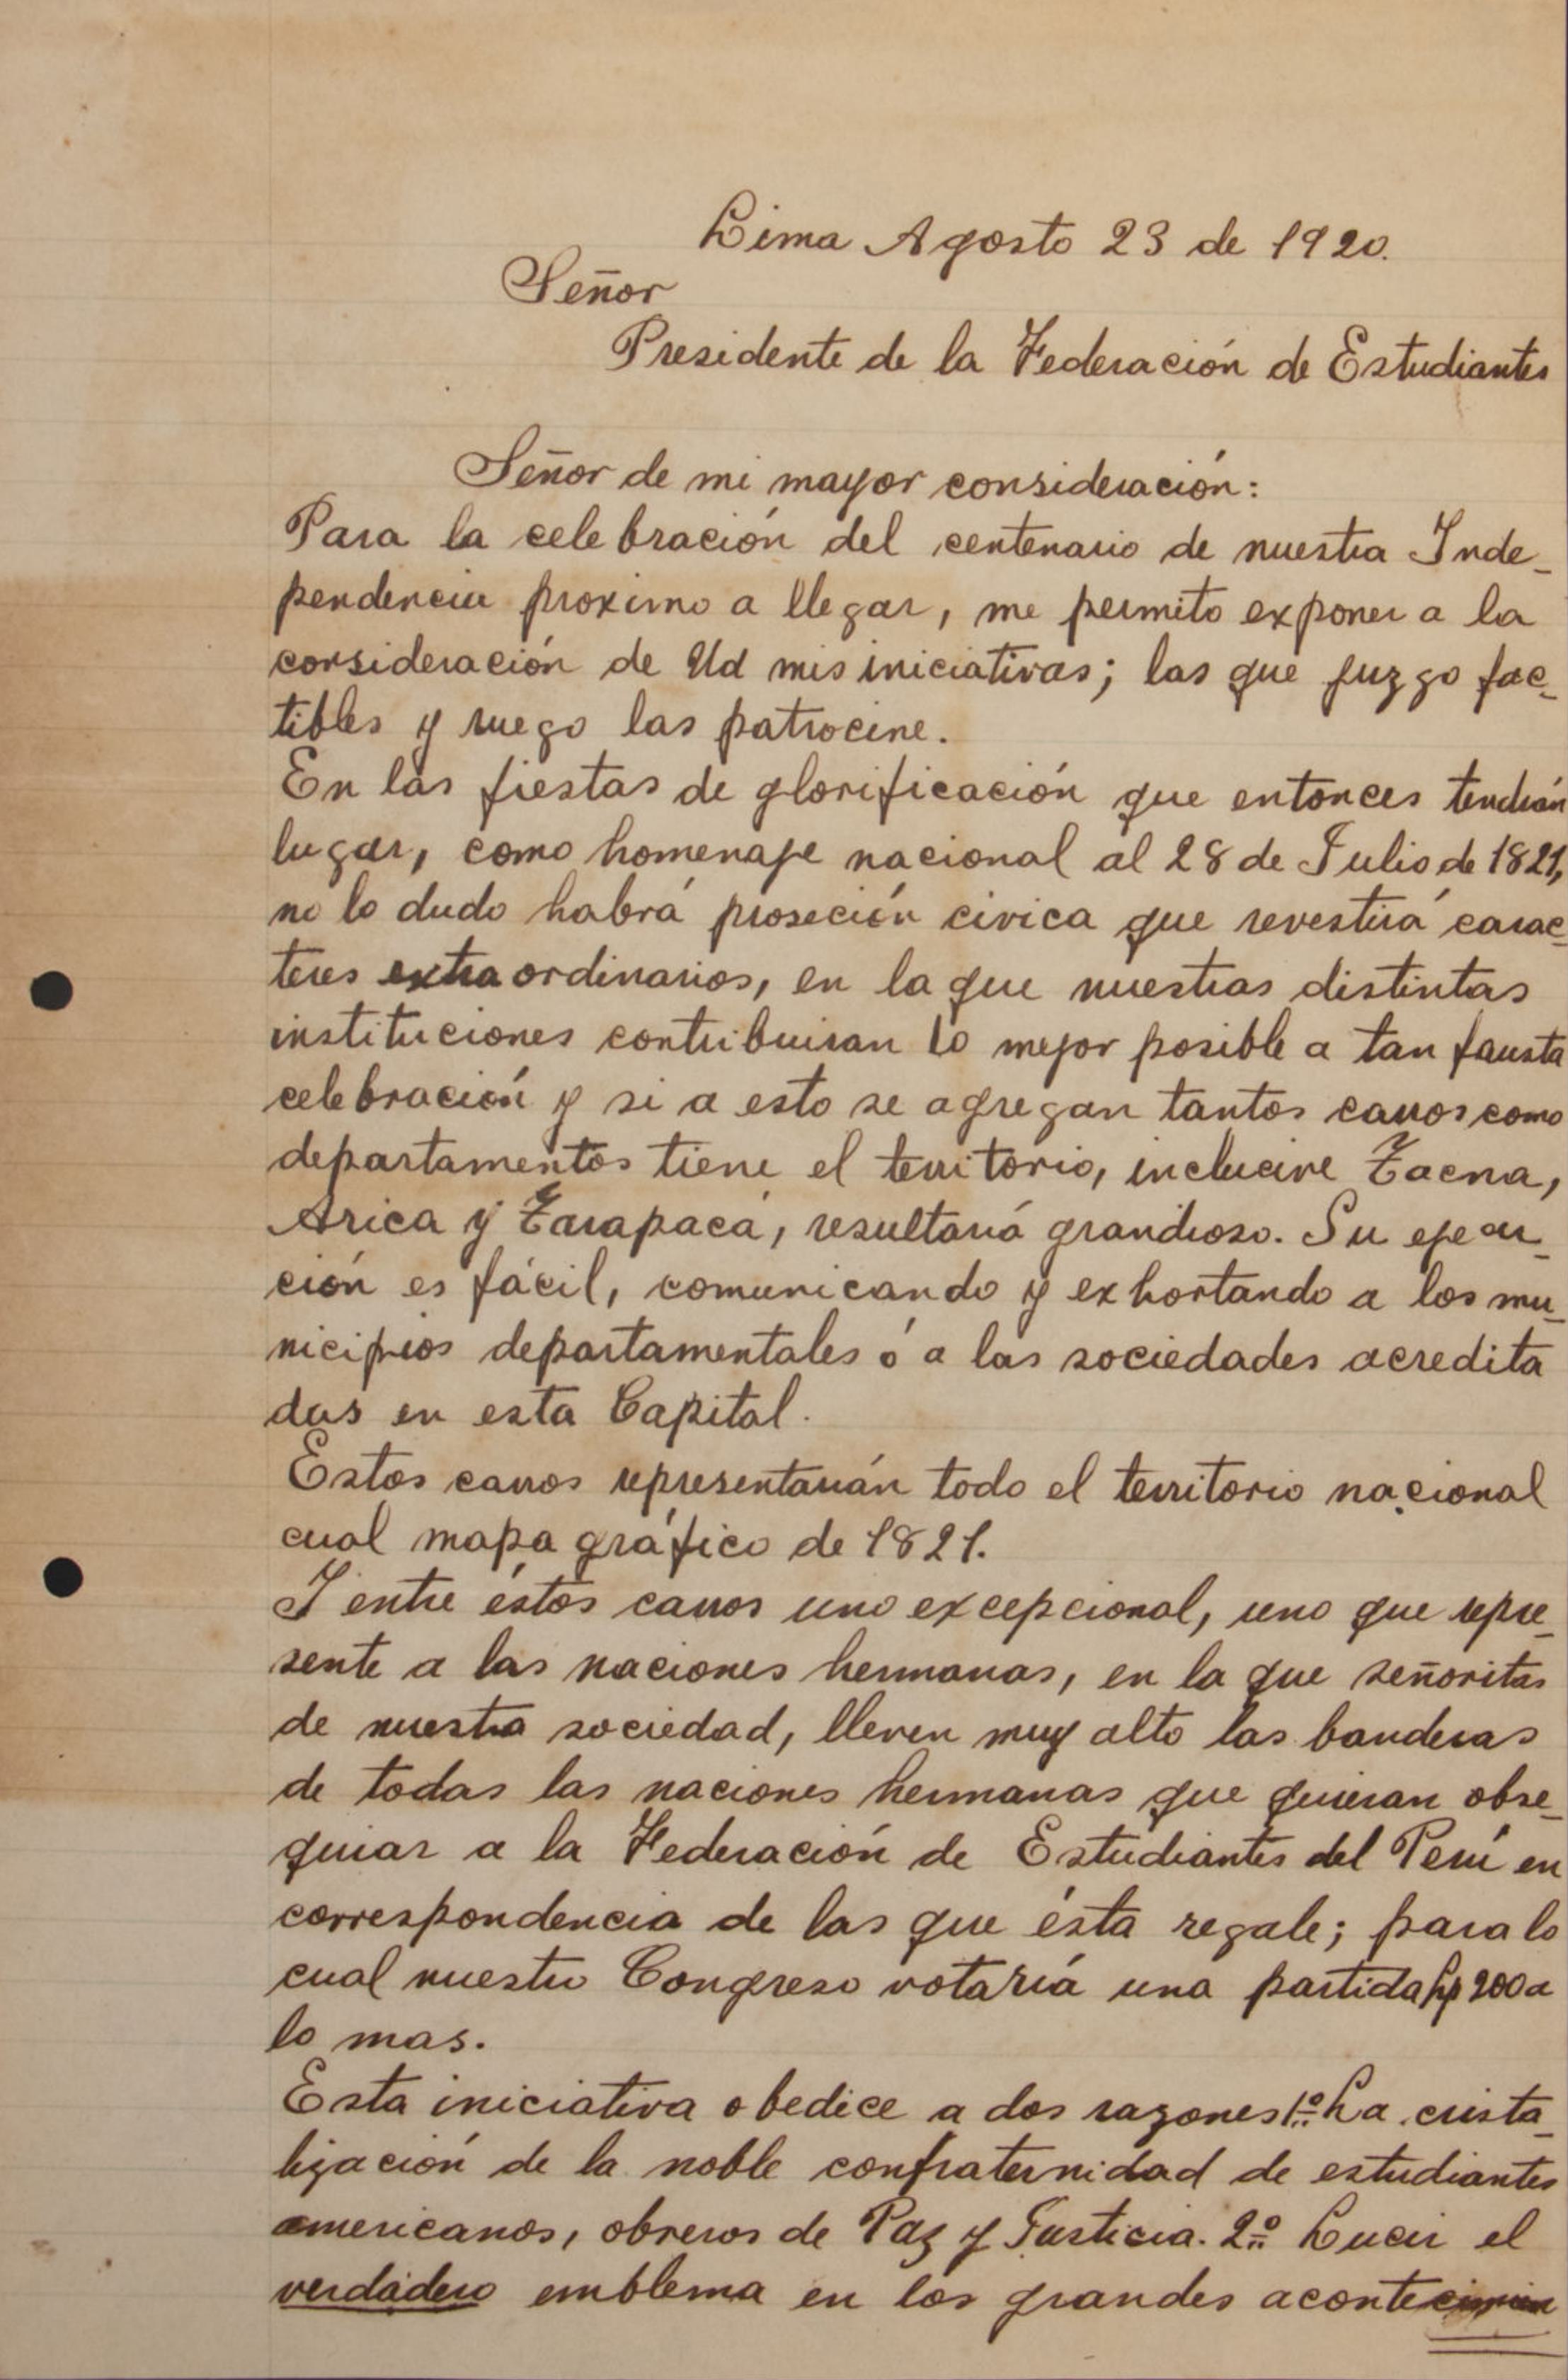 Lima Agosto 23 de 1920.
Señor
Presidente de la Federación de Estudiantes
Señor de mi mayor consideración:
Para la celebración del centenario de nuestra Inde-
pendencia proximo a llegar, me permito exponer a la
consideración de Ud mis iniciativas; las que juzgo fac-
tibles y ruego las patrocine.
En las fiestas de glorificación que entonces tendrán
lugar, como homenaje nacional al 28 de Julio de 1821,
no lo dudo habrá proseción civica que revestirá carac-
teres extraordinarios, en la que nuestras distintas
instituciones contribuiran lo mejor posible a tan fausta
celebración y si a esto se agregan tantos carros como
departamentos tiene el territorio, inclucive Tacna,
Arica y Tarapacá, resultará grandioso. Su ejecu-
ción es fácil, comunicando y exhortando a los mu-
nicipios departamentales ó a las sociedades acredita
das en esta Capital.
Estos carros representarán todo el territorio nacional
cual mapa gráfico de 1821.
I entre éstos carros uno excepcional, uno que repre-
sente a las naciones hermanas, en la que señoritas
de nuestra sociedad, lleven muy alto las banderas
de todas las naciones hermanas que quieran obse-
quiar a la Federación de Estudiantes del Perú en
correspondencia de las que ésta regale; para lo
cual nuestro Congreso votaría una partida Lp 200 a
lo mas.
Esta iniciativa obedice a dos razones 1º La crista-
lización de la noble confraternidad de estudiantes
americanos, obreros de Paz y Justicia. 2º Lucir el
verdadero emblema en los grandes acontecimien